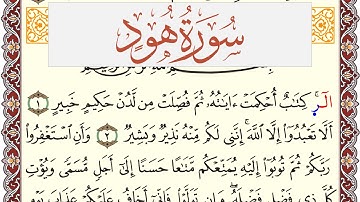 سُورَةُ هُودٍ
الٓر كِتَابٌ أُحْكِمَتْ ءَايَاتُهُۥ ثُمَّ فُصِّلَتْ مِن لَّدُنْ حَكِيمٍ خَبِيرٍ ١
أَلَّا تَعْبُدُوٓا۟ إِلَّا ٱللَّهَ إِنَّنِى لَكُم مِّنْهُ نَذِيرٌ وَبَشِيرٌ ٢ وَأَنِ ٱسْتَغْفِرُوا۟
رَبَّكُمْ ثُمَّ تُوبُوٓا۟ إِلَيْهِ يُمَتِّعْكُم مَّتَاعًا حَسَنًا إِلَىٰٓ أَجَلٍ مُّسَمًّى وَيُؤْتِ
كُلَّ ذِى فَضْلٍ فَضْلَهُۥ وَإِن تَوَلَّوْا۟ فَإِنِّىٓ أَخَافُ عَلَيْكُمْ عَذَابَ يَوْمٍ